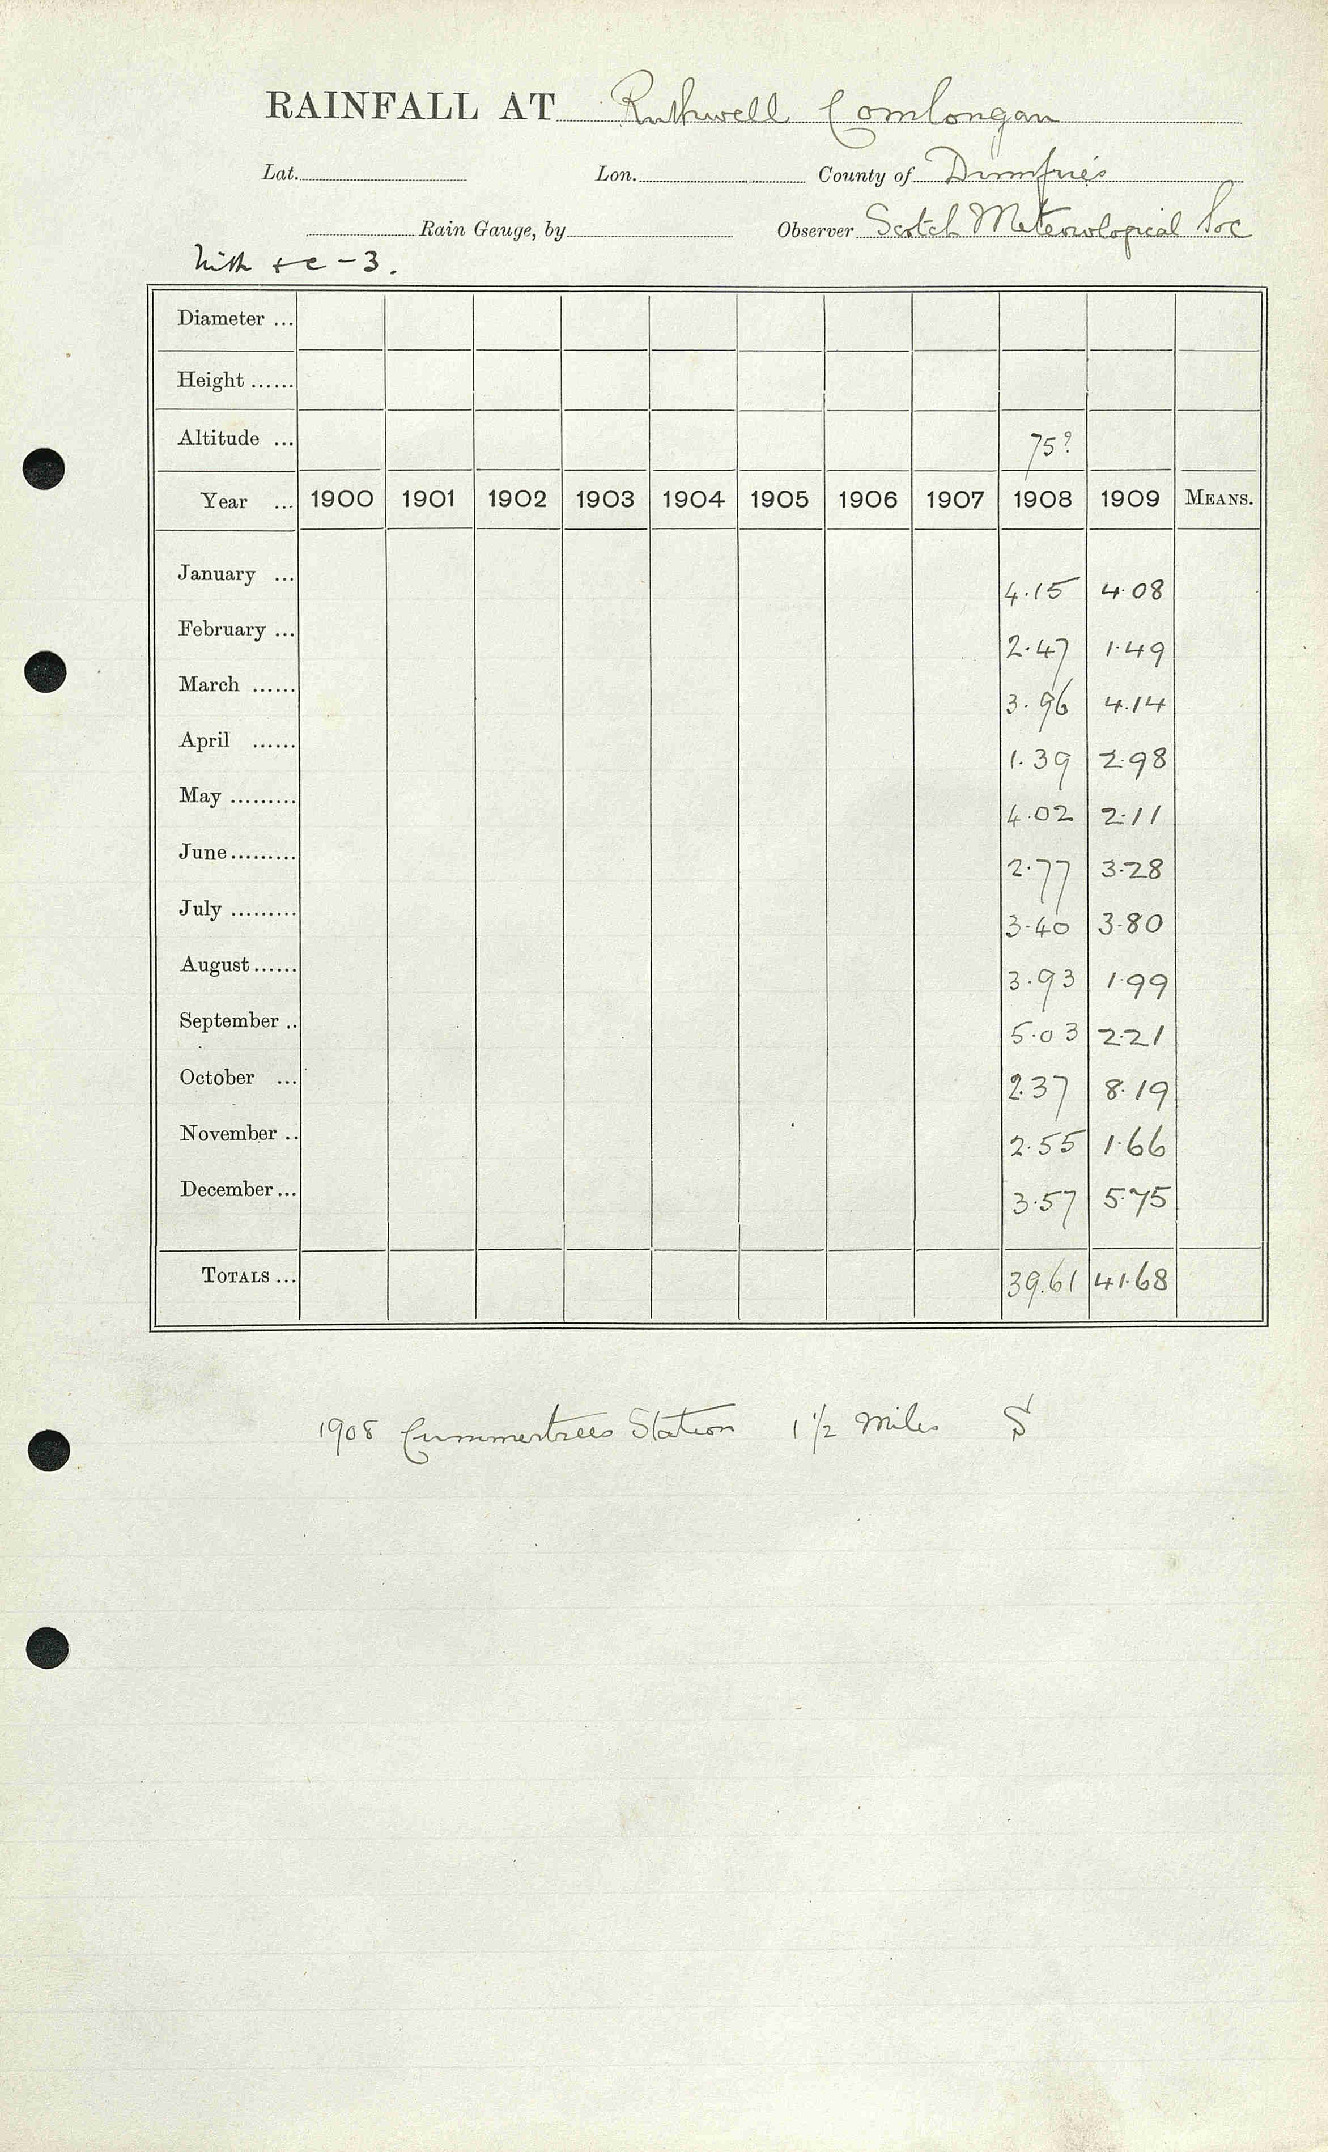 RAINFALL AT Ruthwell Comlongan
Lat. Lon. County of Dumfries
Rain Gauge, by Observer Scotch Meteorological Soc
Nith + c - 3.
Diameter ...
Height ......
Altitude ... 75?
Year ... 1900 1901 1902 1903 1904 1905 1906 1907 1908 1909 MEANS.
January ... 4.15 4.08
February ... 2.47 1.49
March ...... 3.96 4.14
April ...... 1.39 2.98
May ......... 4.02 2.11
June ......... 2.77 3.28
July ......... 3.40 3.80
August ...... 3.93 1.99
September .. 5.03 2.21
October ... 2.37 8.19
November .. 2.55 1.66
December ... 3.57 5.75
TOTALS ... 39.61 41.68
1908 Cummertrees Station 1 1/2 Miles S